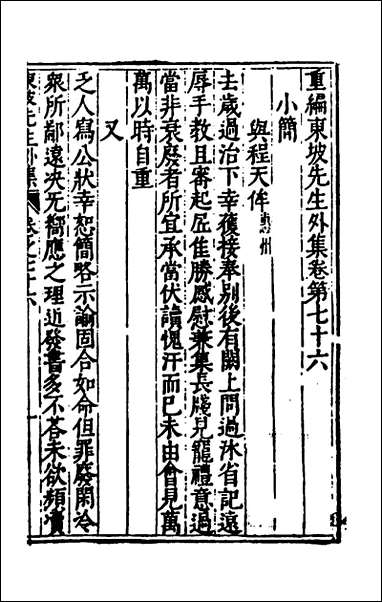 重編東坡先生外集卷第七十六
小簡
與程天侔惠州
去歲過治下幸獲接奉別後有闕上問過沐省記遠
辱手教且審起居佳勝感慰兼集長牋見寵禮意過
當非衰廢者所宜承當伏讀愧汗而已未由會見萬
萬以時自重
又
乏人寫公狀幸恕簡略示諭固合如命但罪廢閑冷
衆所鄙遠決無響應之理近發書多不荅未欲頻瀆
東坡先生外集 卷之七十六 一